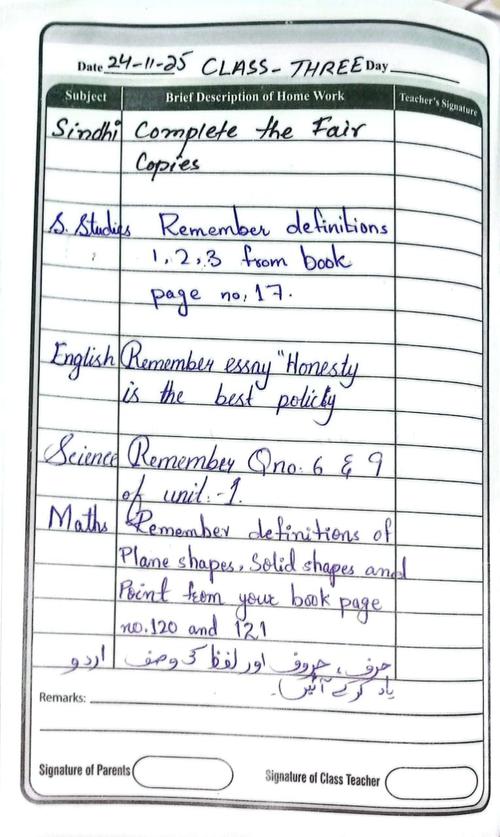 Date 24-11-25 CLASS - THREE Day
Subject Brief Description of Home Work Teacher's Signature
Sindhi Complete the Fair
Copies
S. Studies Remember definitions
1,2,3 from book
page no, 17.
English Remember essay "Honesty
is the best policty
Science Remember Qno. 6 & 9
of unit -1.
Maths Remember definitions of
Plane shapes, Solid shapes and
Point from your book page
no.120 and 121
اردو حرف، حروف اور لفظ کی وصف
یاد کرکے آئیں۔
Remarks:
Signature of Parents Signature of Class Teacher